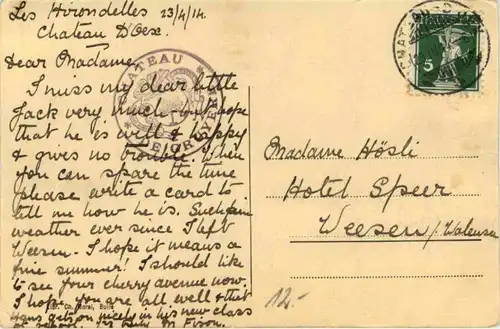 Les Hirondelles 23/4/14.
Chateau D'Oex.
Dear Madame,
I miss my dear little
Jack very much - but hope
that he is well & happy
& gives no trouble. When
you can spare the time
please write a card to
tell me how he is. Such fine
weather ever since I left
Weesen. I hope it means a
fine summer! I should like
to see your cherry avenue now.
I hope you are all well & that
Hans gets on nicely in his new class
at school.
Madame Hösli
Hotel Speer
Weesen
12.-
CHATEAU
5